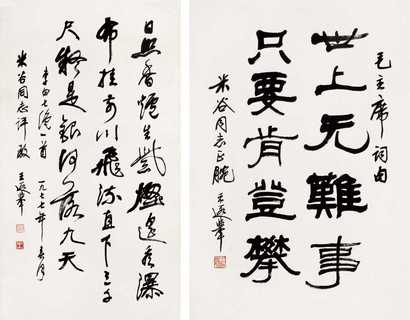 毛主席词句
世上无難事
只要肯登攀
米谷同志正腕
王遐举
日照香爐生紫煙遥看瀑
布挂前川飛流直下三千
尺疑是銀河落九天
李白七绝一首 一九七七年春月
米谷同志评政 王遐举